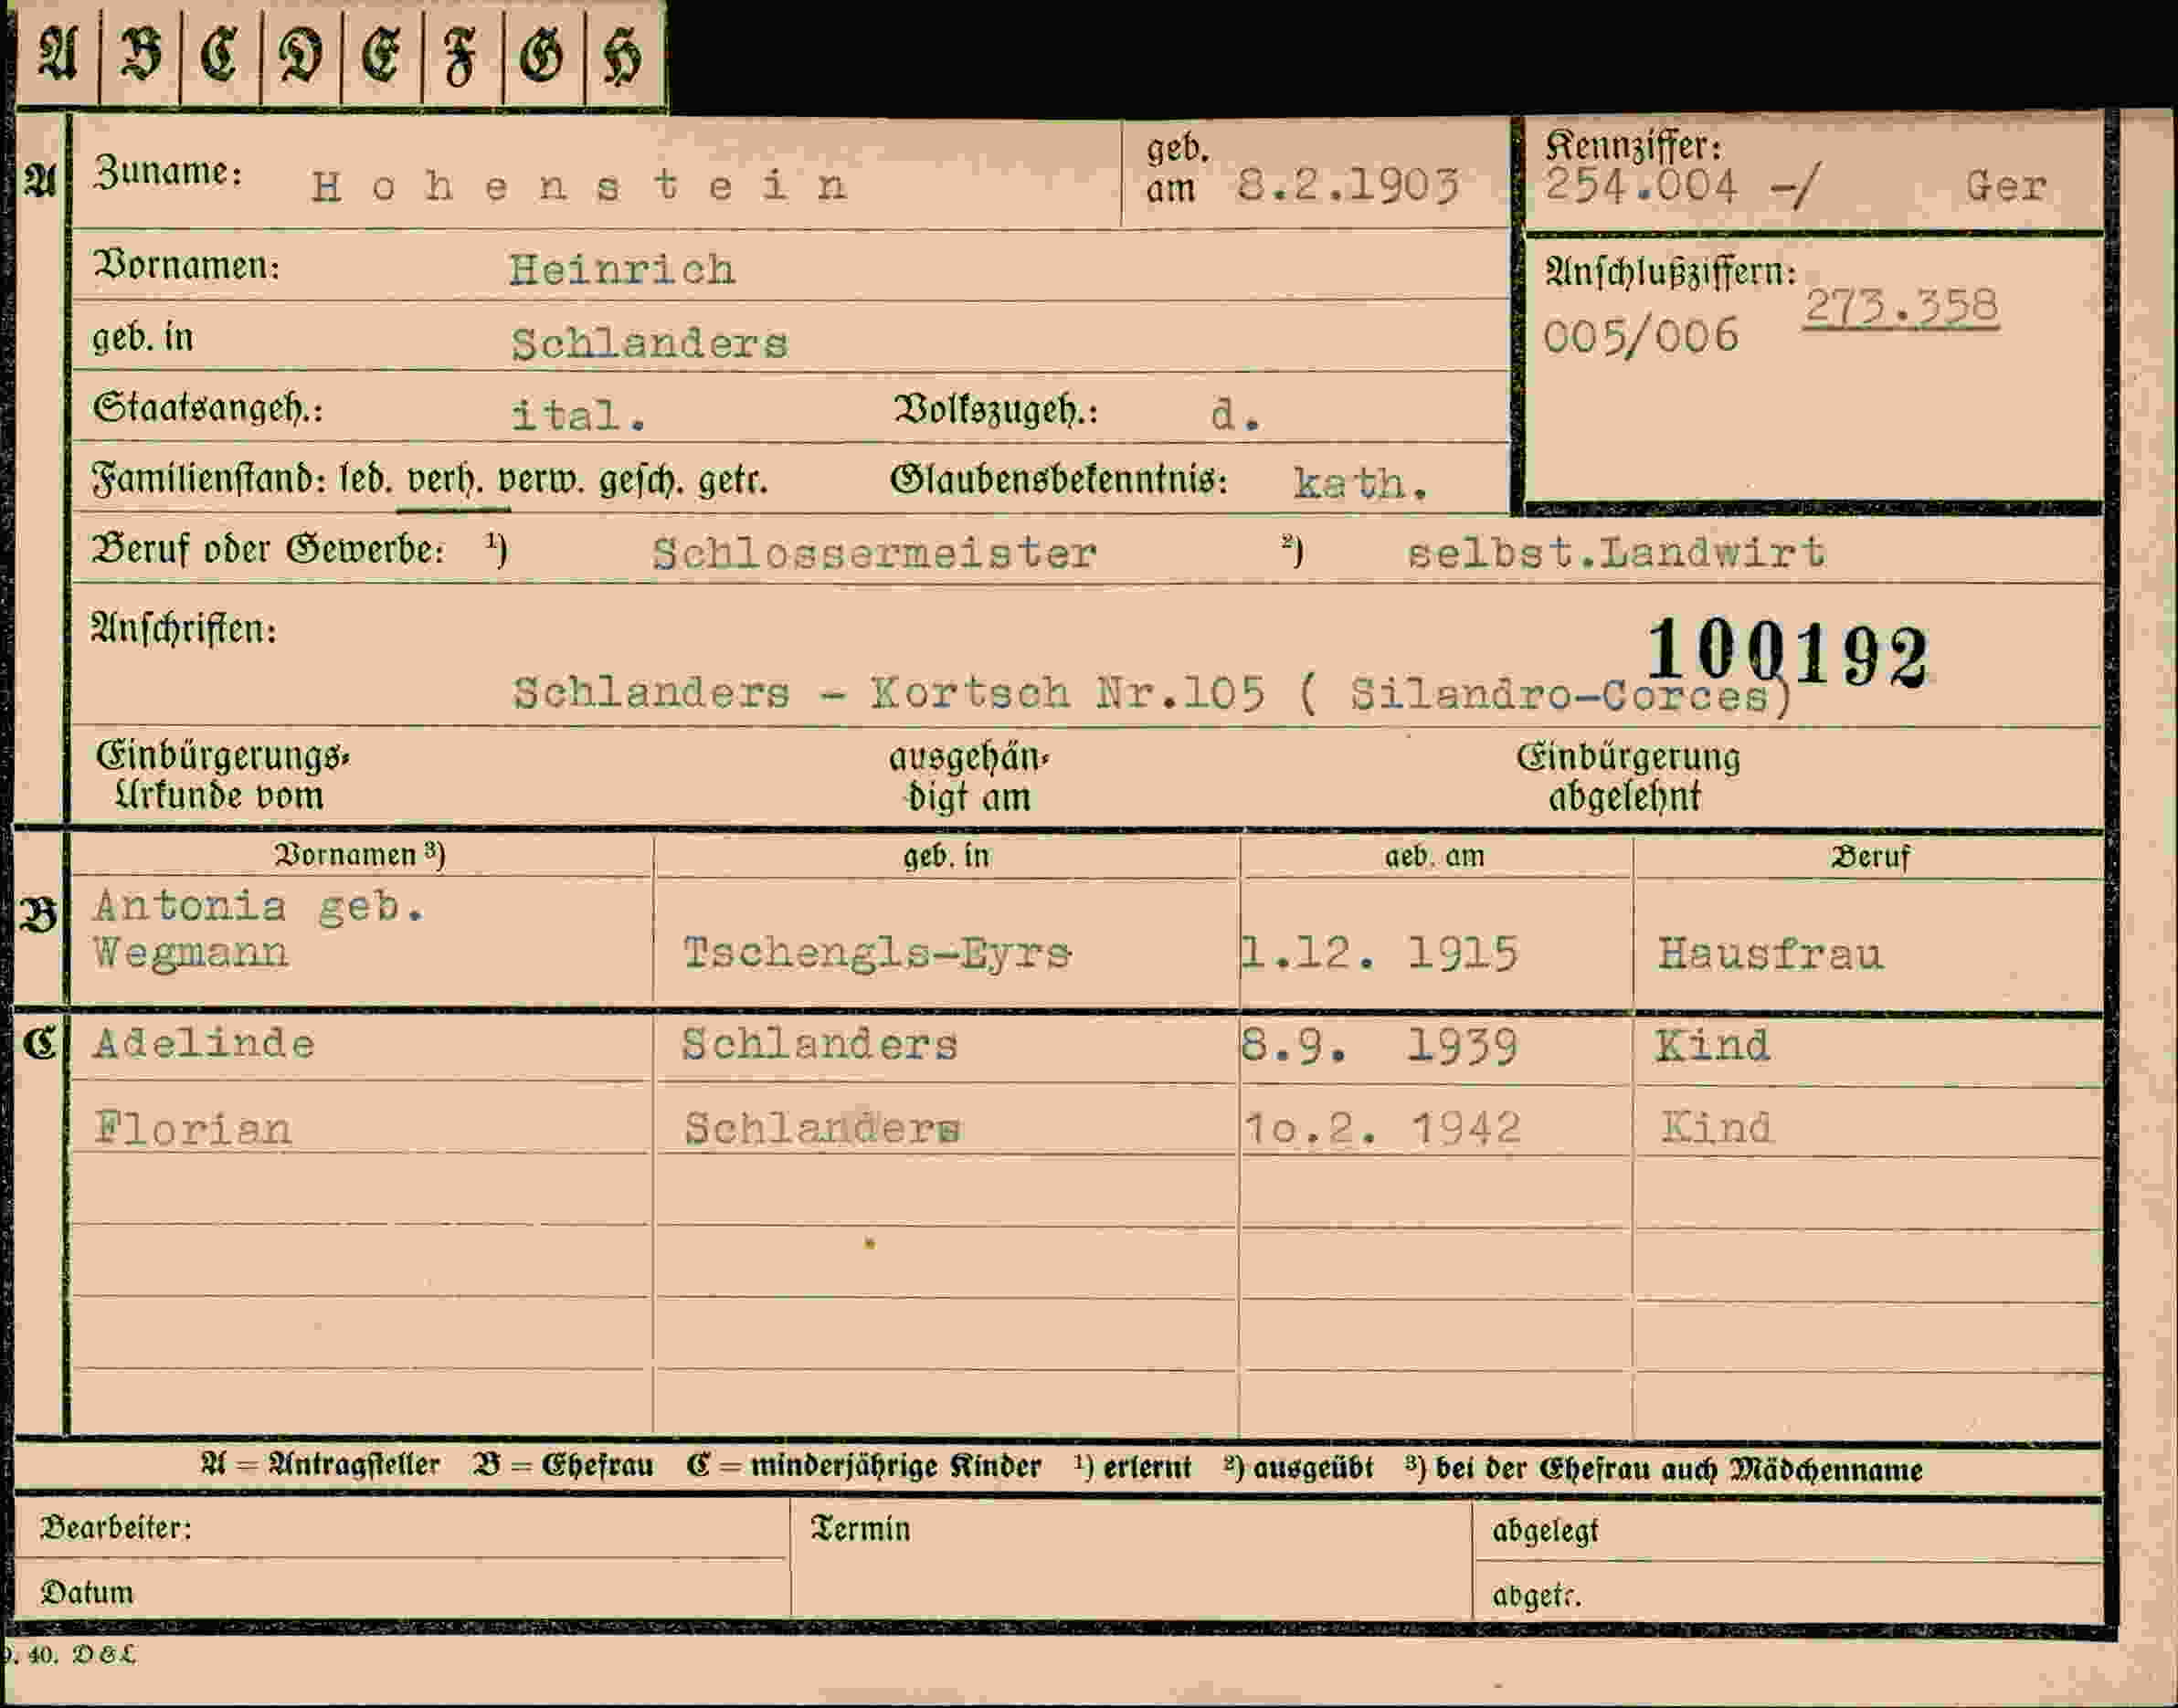 A B C D E F G H
A Zuname: Hohenstein geb. am 8.2.1903 Kennziffer: 254.004 -/ Ger
Vornamen: Heinrich
Anschlußziffern: 273.358
005/006
geb. in Schlanders
Staatsangeh.: ital. Volkszugeh.: d.
Familienstand: led. verh. verw. gesch. getr. Glaubensbekenntnis: kath.
Beruf oder Gewerbe: ¹) Schlossermeister ²) selbst.Landwirt
Anschriften: 100192
Schlanders - Kortsch Nr.105 ( Silandro-Corces)
Einbürgerungs- ausgehän- Einbürgerung
Urkunde vom digt am abgelehnt
Vornamen ³) geb. in geb. am Beruf
B Antonia geb.
Wegmann Tschengls-Eyrs 1.12. 1915 Hausfrau
C Adelinde Schlanders 8.9. 1939 Kind
Florian Schlanders 1o.2. 1942 Kind
A = Antragsteller B = Ehefrau C = minderjährige Kinder ¹) erlernt ²) ausgeübt ³) bei der Ehefrau auch Mädchenname
Bearbeiter: Termin abgelegt
Datum abgetr.
9. 40. D&L